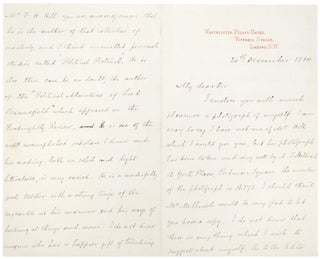 WESTMINSTER PALACE HOTEL,
VICTORIA STREET,
LONDON, S.W.
20th December 1880.
My dear Sir
I enclose you with much
pleasure a photograph of myself. I am
sorry to say I have not one of Mr Hill
which I could give you, but his photograph
has been taken
York Place, Portman Square. The number
of the photograph is I should think
Mr would be very glad to let
you have a copy. I do not know that
there is anything which I wish to
suggest about myself. As to the Editor
Mr F. H. Hill you are aware of course that
he is the author of that collection of
masterly, and I think unrivalled personal
studies called Political Portraits. He is
also there can be no doubt, the author
of the "Political Adventures of Lord
Beaconsfield" which appeared in the
Fortnightly Review, and is one of the
most accomplished scholars I know and
his reading, both in solid and light
literature, is very varied. He is a wonderfully
good talker with a strong tinge of the
sarcastic in his manner and his ways of
looking at things and men. I do not know
anyone who has a happier gift of touching